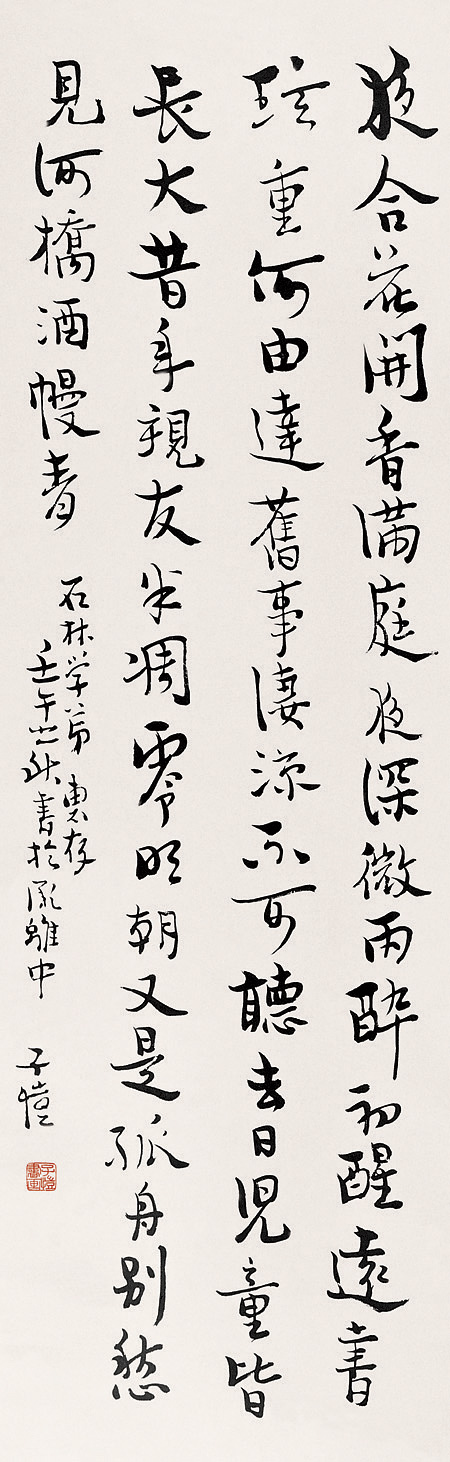 夜合花開香滿庭夜深微雨醉初醒遠書
珍重何由達舊事淒涼不可聽去日兒童皆
長大昔年親友半凋零明朝又是孤舟別愁
見河橋酒幔青
石林学弟惠存
壬午之秋書於流離中
子愷
子愷書畫